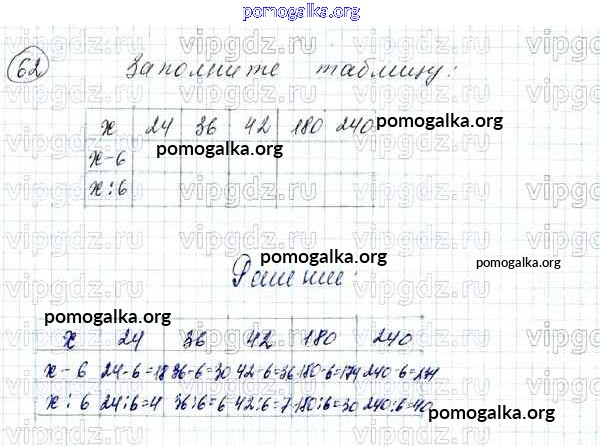 pomogalka.org
62 Заполните таблицу:
x 24 36 42 180 240 pomogalka.org
x-6 pomogalka.org
x:6
pomogalka.org
Решение: pomogalka.org
pomogalka.org
x 24 36 42 180 240
x-6 24-6=18 36-6=30 42-6=36 180-6=174 240-6=234
x:6 24:6=4 36:6=6 42:6=7 180:6=30 240:6=40
pomogalka.org
vipgdz.ru vipgdz.ru vipgdz.ru